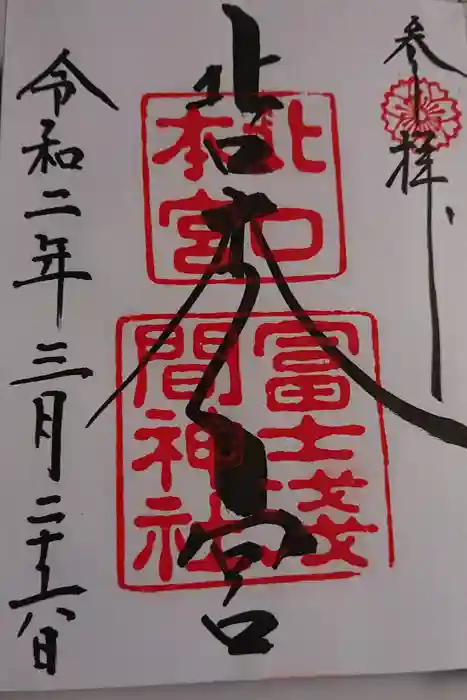 参拝
北口本宮
令和二年三月二十六日
北口
本宮
富士淺
間神社